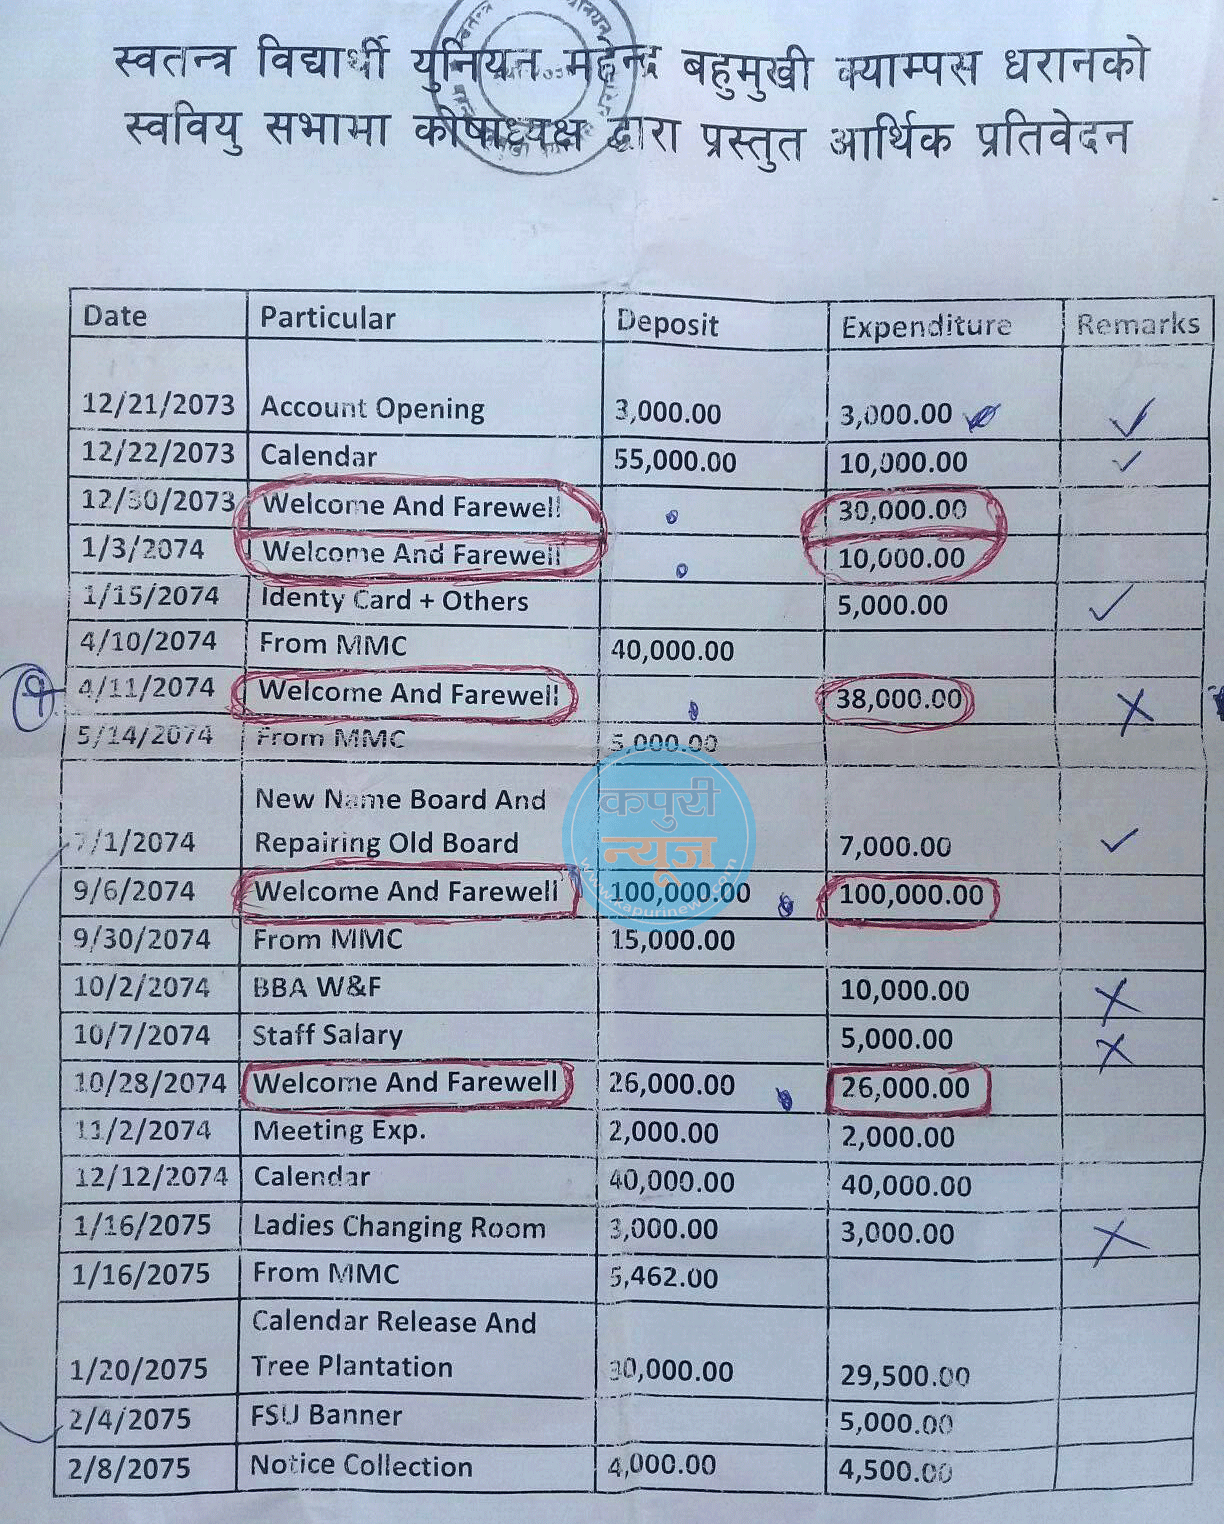 स्वतन्त्र विद्यार्थी युनियन महेन्द्र बहुमुखी क्याम्पस धरानको
स्ववियु सभामा कोषाध्यक्ष द्वारा प्रस्तुत आर्थिक प्रतिवेदन
Date Particular Deposit Expenditure Remarks
12/21/2073 Account Opening 3,000.00 3,000.00
12/22/2073 Calendar 55,000.00 10,000.00
12/30/2073 Welcome And Farewell 30,000.00
1/3/2074 Welcome And Farewell 10,000.00
1/15/2074 Identy Card + Others 5,000.00
4/10/2074 From MMC 40,000.00
4/11/2074 Welcome And Farewell 38,000.00
5/14/2074 From MMC 5,000.00
New Name Board And
7/1/2074 Repairing Old Board 7,000.00
कपुरी
न्यूज
www.kapurinews.com
9/6/2074 Welcome And Farewell 100,000.00 100,000.00
9/30/2074 From MMC 15,000.00
10/2/2074 BBA W&F 10,000.00
10/7/2074 Staff Salary 5,000.00
10/28/2074 Welcome And Farewell 26,000.00 26,000.00
11/2/2074 Meeting Exp. 2,000.00 2,000.00
12/12/2074 Calendar 40,000.00 40,000.00
1/16/2075 Ladies Changing Room 3,000.00 3,000.00
1/16/2075 From MMC 5,462.00
Calendar Release And
1/20/2075 Tree Plantation 29,500.00
2/4/2075 FSU Banner 5,000.00
2/8/2075 Notice Collection 4,000.00 4,500.00